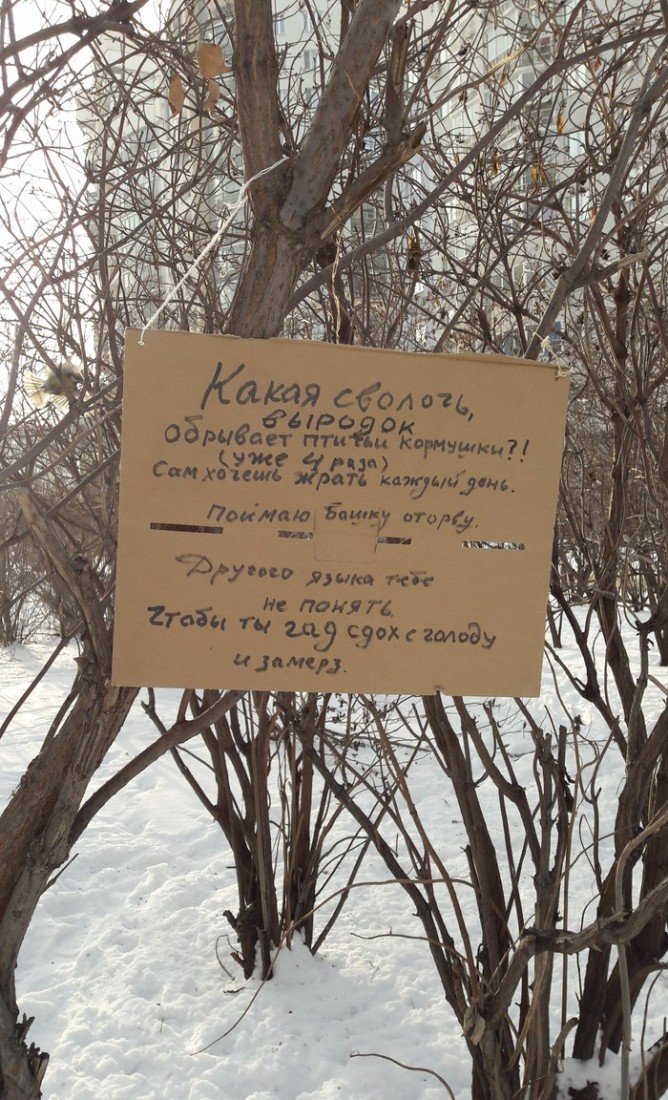 Какая сволочь,
выродок
обрывает птитьи кормушки?!
(уже 4 раза)
Сам хочешь жрать каждый день.
Поймаю башку оторву.
Другого языка тебе
не понять.
Чтобы ты гад сдох с голоду
и замерз.